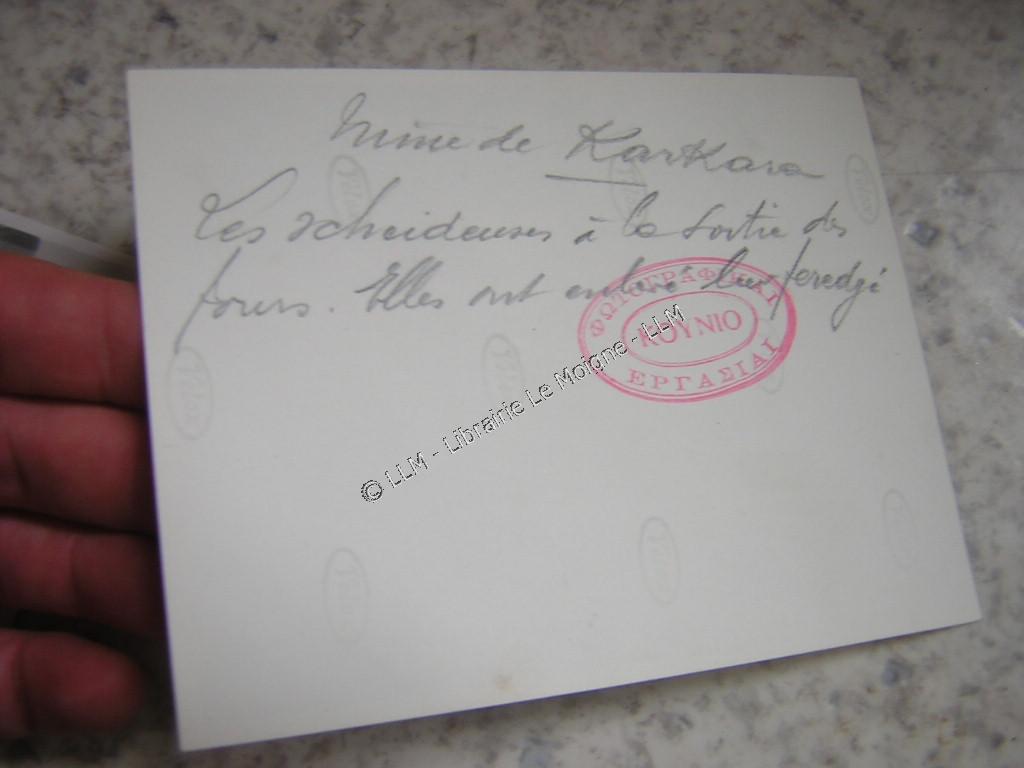 Mine de Karkara
Les scheideuses à la sortie des
fours. Elles ont enlevé leur feredgi
ΦΩΤΟΓΡΑΦΙΚΑΙ
ΚΟΥΝΙΟ
ΕΡΓΑΣΙΑΙ
© LLM - Librairie Le Moigne - LLM